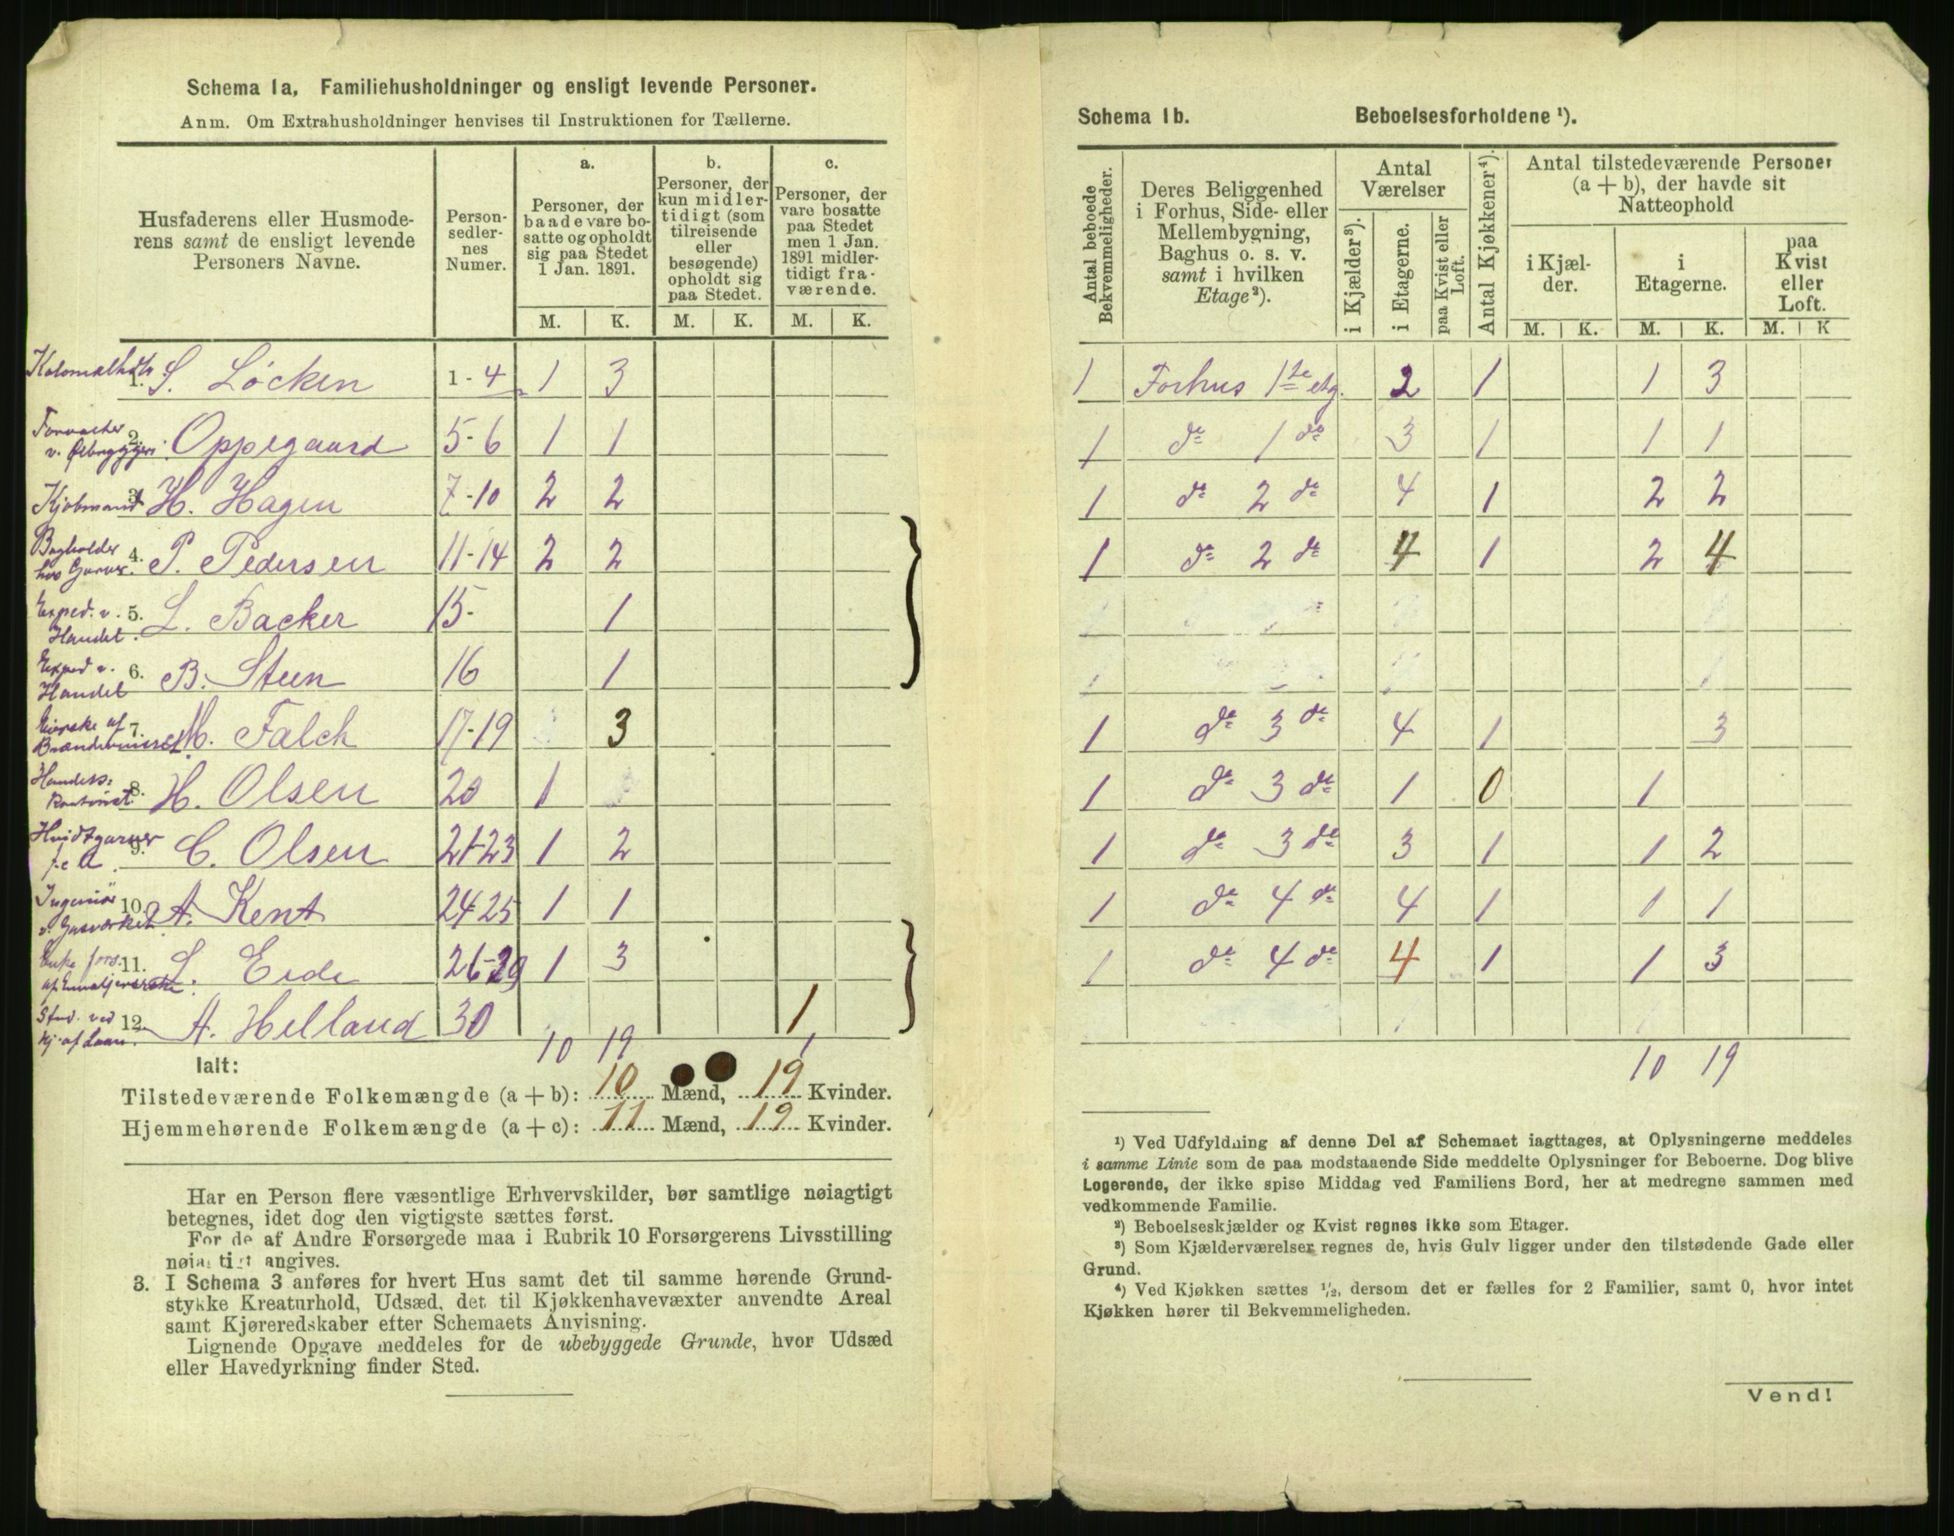 Schema 1a. Familiehusholdninger og ensligt levende Personer.
Anm. Om Extrahusholdninger henvises til Instruktionen for Tællerne.
Husfaderens eller Husmode-
rens samt de ensligt levende
Personers Navne.
Person-
sedler-
nes
Numer.
a.
Personer, der
baade vare bo-
satte og opholdt
sig paa Stedet
1 Jan. 1891.
b.
Personer, der
kun midler-
tidigt (som
tilreisende
eller
besøgende)
opholdt sig
paa Stedet.
c.
Personer, der
vare bosatte
paa Stedet
men 1 Jan.
1891 midler-
tidigt fra-
værende.
M. K. M. K. M. K.
1. S. Löcken 1-4 1 3
2. Oppegaard 5-6 1 1
Kjøbmand 3. H. Hagen 7-10 2 2
Bogholder 4. P. Pedersen 11-14 2 2
Exped. v. Handel. 5. L. Backer 15- 1
Exped v. Handel 6. B. Steen 16 1
7. M. Falch 17-19 3
8. H. Olsen 20 1
9. C. Olsen 21-23 1 2
Ingeniör v. Gasværket 10. A. Kent 24-25 1 1
11. L. Eide 26-29 1 3
12. A. Helland 30 1
10 19 1
Ialt:
Tilstedeværende Folkemængde (a + b): 10 Mænd, 19 Kvinder.
Hjemmehørende Folkemængde (a + c): 11 Mænd, 19 Kvinder.
Har en Person flere væsentlige Erhvervskilder, bør samtlige nøiagtigt
betegnes, idet dog den vigtigste sættes først.
For de af Andre Forsørgede maa i Rubrik 10 Forsørgerens Livsstilling
nøiagtigt angives.
3. I Schema 3 anføres for hvert Hus samt det til samme hørende Grund-
stykke Kreaturhold, Udsæd, det til Kjøkkenhavevæxter anvendte Areal
samt Kjøreredskaber efter Schemaets Anvisning.
Lignende Opgave meddeles for de ubebyggede Grunde, hvor Udsæd
eller Havedyrkning finder Sted.
Schema 1b. Beboelsesforholdene ¹).
Antal beboede
Bekvemmeligheder.
Deres Beliggenhed
i Forhus, Side- eller
Mellembygning,
Baghus o. s. v.
samt i hvilken
Etage²).
Antal
Værelser
i Kjælder³).
i Etagerne.
paa Kvist eller
Loft.
Antal Kjøkkener⁴).
Antal tilstedeværende Personer
(a + b), der havde sit
Natteophold
i Kjæl-
der.
i
Etagerne.
paa
Kvist
eller
Loft.
M. K. M. K. M. K
1 Forhus 1ste etg. 2 1 1 3
1 do 1 do 3 1 1 1
1 do 2 do 4 1 2 2
1 do 2 do 4 1 2 4
1 do 3 do 4 1 3
1 do 3 do 1 0 1
1 do 3 do 3 1 1 2
1 do 4 do 4 1 1 1
1 do 4 do 4 1 1 3
10 19
¹) Ved Udfyldning af denne Del af Schemaet iagttages, at Oplysningerne meddeles
i samme Linie som de paa modstaaende Side meddelte Oplysninger for Beboerne. Dog blive
Logerende, der ikke spise Middag ved Familiens Bord, her at medregne sammen med
vedkommende Familie.
²) Beboelseskjælder og Kvist regnes ikke som Etager.
³) Som Kjælderværelser regnes de, hvis Gulv ligger under den tilstødende Gade eller
Grund.
⁴) Ved Kjøkken sættes ½, dersom det er fælles for 2 Familier, samt 0, hvor intet
Kjøkken hører til Bekvemmeligheden.
Vend!